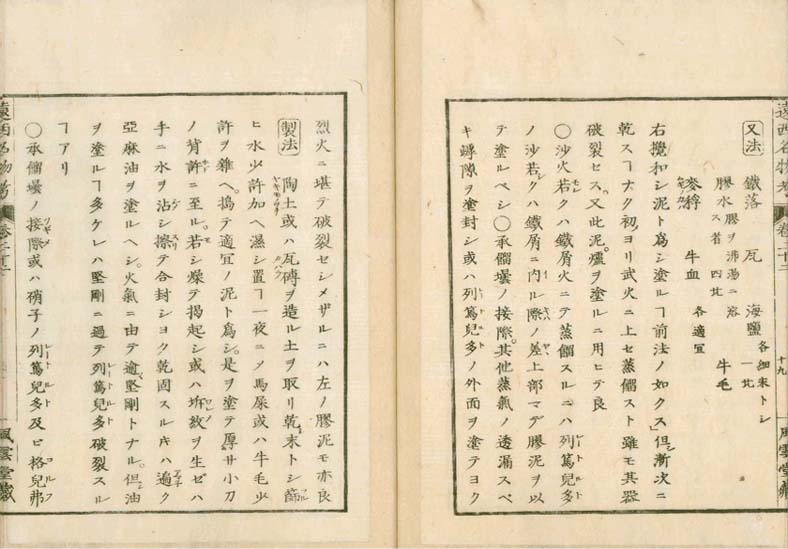 遠西名物考 卷二十二 十九 風雲堂藏
又法 鐵落 瓦 海鹽 各細末トシ一比
膠水 膠ヲ沸湯ニ溶ス者四比 牛毛
麥稃 牛血 各適宜
右攪和シ泥ト爲シ塗ルヿ前法ノ如クス但漸次ニ
乾スヿナク初ヨリ武火ニ上セ蒸餾スト雖モ其器
破裂セス又此泥爐ヲ塗ルニ用ヒテ良
〇沙火若クハ鐵屑火ニテ蒸餾スルニハ列篤兒多レトルト
ノ沙若クハ鐵屑ニ内ル際ノ差上部マデ膠泥ヲ以
テ塗ルベシ〇承餾壜ノ接際其他蒸氣ノ透漏スベ
キ罅隙ヲ塗封シ或ハ列篤兒多レトルトノ外面ヲ塗テヨク
烈火ニ堪テ破裂セシメザルニハ左ノ膠泥モ亦良
製法 陶土或ハ瓦磚ヲ造ル土ヲ取リ乾末トシ篩
ヒ水少許加ヘ濕シ置ヿ一夜ニメ馬屎或ハ牛毛少
許ヲ雜ヘ搗テ適宜ノ泥ト爲シ是ヲ塗テ厚サ小刀
ノ脊許ニ至ル若シ燥テ揭起シ或ハ坼紋ヲ生ゼハ
手ニ水ヲ沾シ擦テ合封シヨク乾固スルキハ遍ク
亞麻油ヲ塗ルヘシ火氣ニ由テ逾堅剛トナル但油
ヲ塗ルヿ多ケレハ堅剛ニ過テ列篤兒多破裂スル
ヿアリ
〇承餾壜ノ接際或ハ硝子ノ列篤兒多レートルト及ヒ格兒弗コルフ
遠西名物考 卷二十二 風雲堂藏